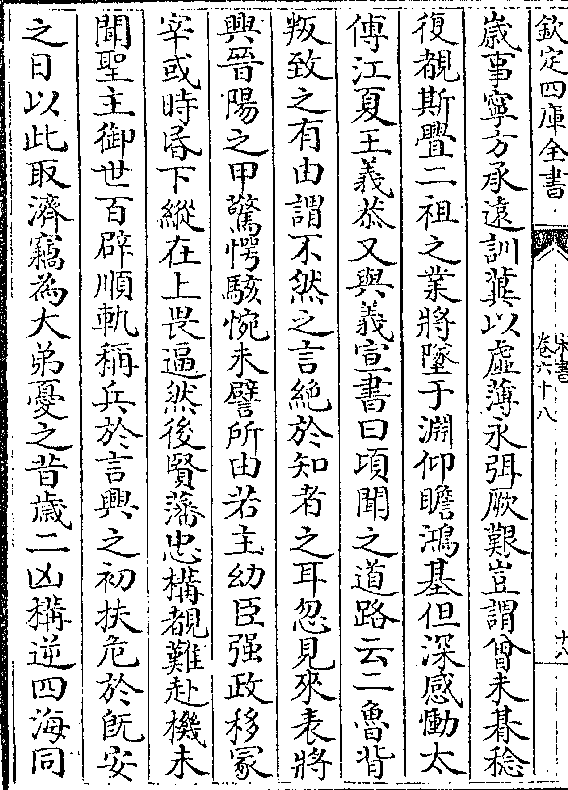 欽定四庫全書
宋書
卷六十八
十八
歲事寧方承遠訓冀以虛薄永弭厥艱豈謂曾未朞稔
復覩斯舋二祖之業將墜于淵仰瞻鴻基但深感慟太
傅江夏王義恭又與義宣書曰頃聞之道路云二魯背
叛致之有由謂不然之言絶於知者之耳忽見來表將
興晉陽之甲驚愕駭惋未譬所由若主幼臣强政移冢
宰或時昏下縱在上畏逼然後賢藩忠構覩難赴機未
聞聖主御世百辟順軌稱兵於言興之初扶危於旣安
之日以此取濟竊為大弟憂之昔歲二凶構逆四海同